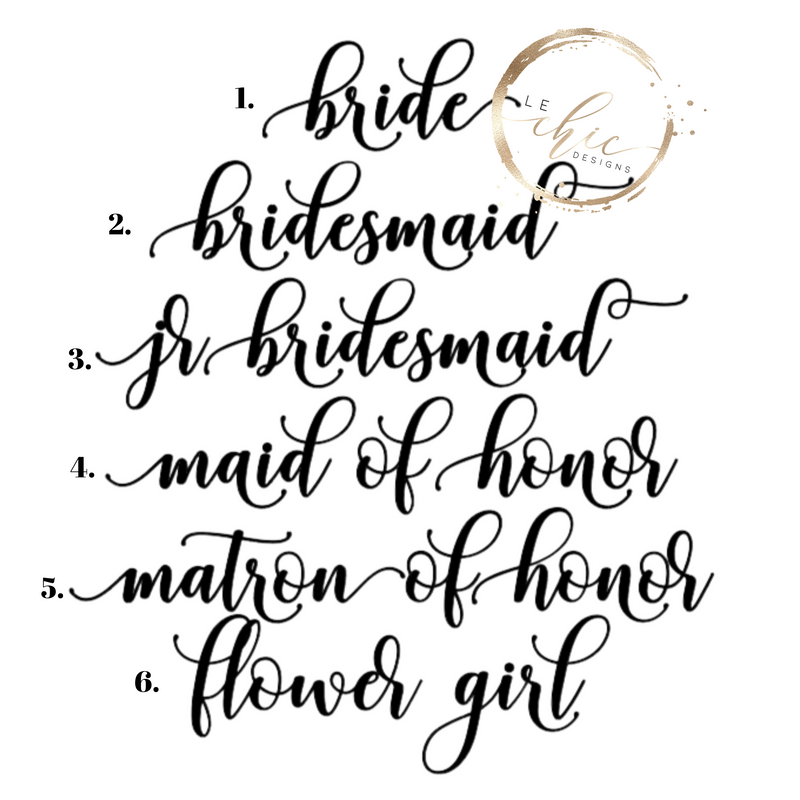 1. bride
LE
chic
DESIGNS
2. bridesmaid
3. jr bridesmaid
4. maid of honor
5. matron of honor
6. flower girl